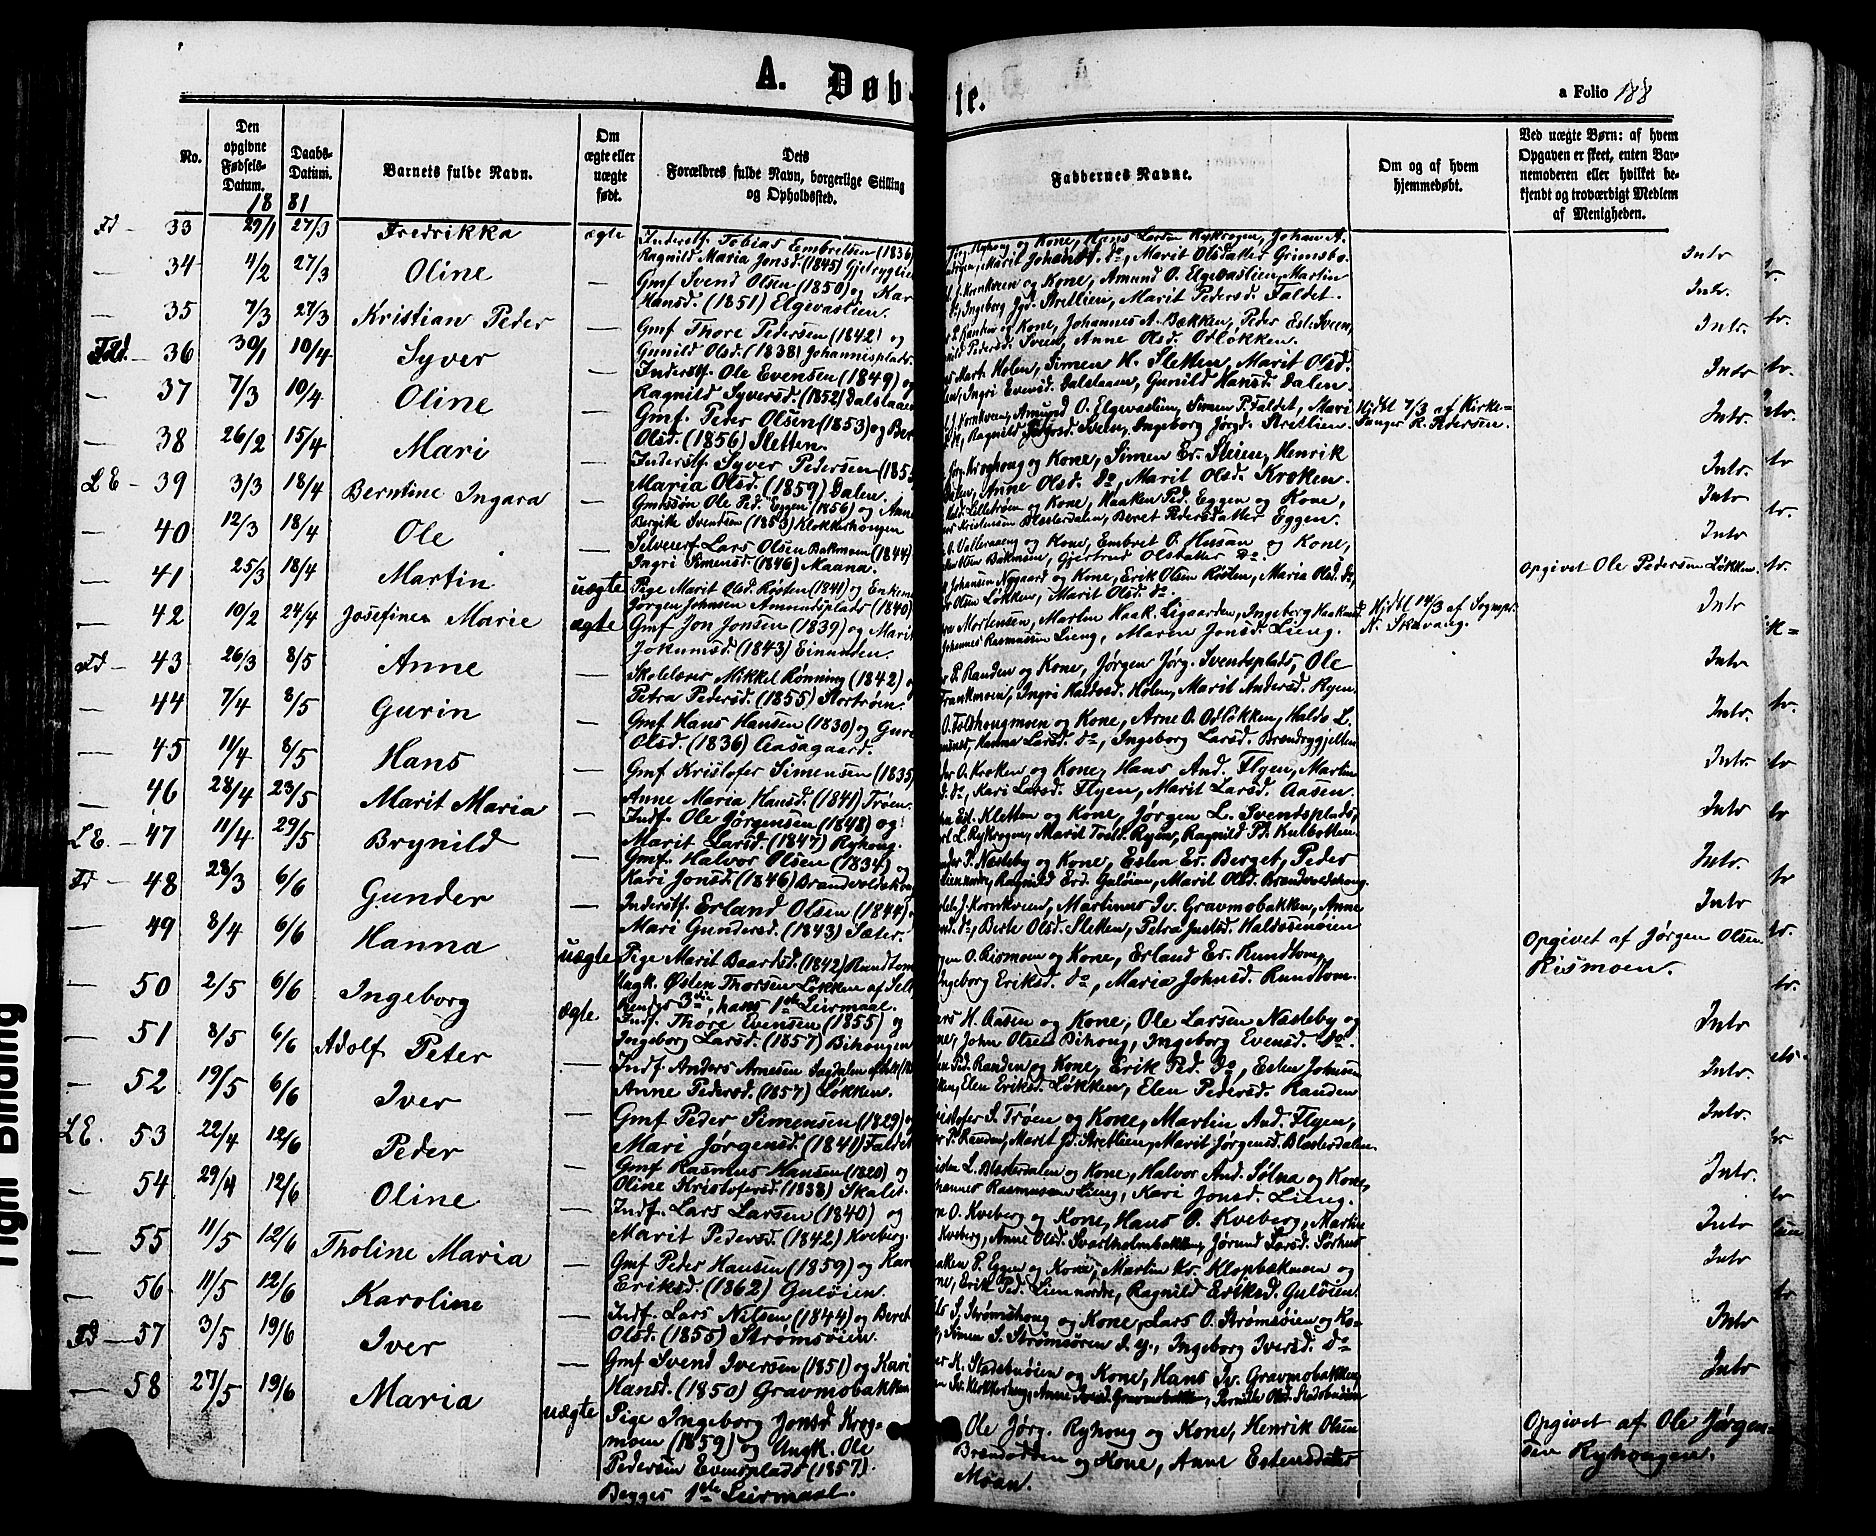 A. Døb- te.
a Folio 188
No.
Den opgivne Fødsels-Datum.
Daabs-Datum.
Barnets fulde Navn.
Om ægte eller uægte født.
Dets Forældres fulde Navn, borgerlige Stilling og Opholdssted.
Faddernes Navne.
Om og af hvem hjemmedøbt.
Ved uægte Børn: af hvem Opgaven er skeet, enten Barnemoderen eller hvilket bekjendt og troværdigt Medlem af Menigheden.
18 81
Fd - 33 29/1 27/3 Fredrikka ægte Inderstf. Tobias Embretsen (1836)
Ragnild Maria Jonsd. (1845) Gjetryglien
Ryhong og Kone, Hans Larsen Rykrogen, Johan A.
Marit Johansd. do, Marit Olsdatter Grimsbo.
Intr
— 34 4/2 27/3 Oline — Gmf Svend Olsen (1850) og Kari
Hansd. (1851) Elgevaslien.
Kornkveen og Kone, Amund O. Elgevaslien, Martin
Ingeborg Jgd. Strellien, Marit Pedersd. Faldet.
Intr.
— 35 7/3 27/3 Kristian Peder — Gmf Thore Pedersen (1842) og
Gunild Olsd. (1838) Johannisplads.
Randen og Kone, Johannes A. Bækken, Peder Est. Sveen,
Pedersd. Sveen, Anne Olsd. Odløkken.
Intr.
Fld. - 36 30/1 10/4 Syver — Inderstf. Ole Evensen (1849) og
Ragnild Syversd. (1852) Dalstaaen
Mart. Holen, Simen H. Sletten, Marit Olsd.
Ingri Evensd. Dalstaaen, Gunild Hansd. Dalen.
Intr
— 37 7/3 10/4 Oline — Gmf. Peder Olsen (1853) og Ber
Olsd. (1856) Sletten.
Kornkveen, Amund O. Elgevaslien, Simen P. Faldet, Mari
Ragnild Pedersd. Sveen, Ingeborg Jørgd. Strellien
Hjdbt 7/3 af Kirke=
sanger R. Pedersen.
Intr.
— 38 26/2 15/4 Mari — Inderstf. Syver Pedersen (185
Maria Olsd. (1859) Dalen.
Jørg. Kroghong og Kone, Simen Er. Steien, Henrik
Dalen, Anne Olsd. do, Marit Olsd. Kroken.
Intr
LE - 39 3/3 18/4 Berntine Ingara — Gmkssøn Ole Ped. Eggen (1856) og Anne
Bergitte Svendsen (1853) Klokkerhougen
Lillestrøm og Kone, Haaken Ped. Eggen og Kone,
Kristensen Blæsterdalen, Beret Pedersdatter Eggen.
Intr
— 40 12/3 18/4 Ole — Selveierf. Lars Olsen Bakmoen (1844)
Ingri Simensd. (1846) Maana.
O. Valleraaeng og Kone, Embret O. Husan og Kone,
Olsen Bakmoen, Gjertrud Olsdatter do.
Intr
— 41 25/3 18/4 Martin uægte Pige Marit Olsd. Røsten (1841) og Enkem
Jørgen Johnsen Amundsplads (1840)
Johansen Nygaard og Kone, Erik Olsen Røsten, Maria Olsd. do,
Olsen Løkken, Marit Olsd. do.
Opgivet Ole Pedersen Løkken.
— 42 10/2 24/4 Josefine Marie ægte Gmf Jon Jonsen (1839) og Marit
Jokumsd. (1843) Einunden.
Mortensen, Martin Haak. Ligaarden, Ingeborg Haaknsd.
Johannes Rasmussen Lieng, Maren Jonsd. Lieng.
Hjdbt 14/3 af Sognpr.
N. Skavang.
Intr
Fd - 43 26/3 8/5 Anne — Skolelærer Mikkel Rønning (1842) og
Petra Pedersd. (1855) Stortrøen.
P. Randen og Kone, Jørgen Jørg. Svendsplads, Ole
Frankmoen, Ingri Knudsd. Holen, Marit Andersd. Ryen.
Intr
— 44 7/4 8/5 Gurin — Gmf Hans Hansen (1830) og Guri
Olsd. (1836) Aasagaard.
O. Foldhongmoen og Kone, Arne O. Odløkken, Haldo L.
Hanna Larsd. do, Ingeborg Larsd. Brændryggjelten
Intr.
— 45 11/4 8/5 Hans — Gmf Kristofer Simensen (1835)
Anne Maria Hansd. (1841) Trøen.
O. Kroken og Kone, Hans And. Flyen, Martin
do, Kari Larsd. Flyen, Marit Larsd. Aasen.
Intr.
— 46 28/4 23/5 Marit Maria — Indf. Ole Jørgensen (1848) og
Marit Larsd. (1847) Ryhong.
Est. Kletten og Kone, Jørgen L. Svendsplads,
L. Rykrogen, Marit Trulsd. Ryen, Ragnild Pd. Kulbotten.
Intr
LE. - 47 11/4 29/5 Brynild — Gmf. Halvor Olsen (1834) og
Kari Jonsd. (1846) Brandvoldskro
P. Næsteby og Kone, Esten Er. Berget, Peder
Ragnild Erd. Guløien, Marit Olsd. Brandvoldshong.
Intr.
Fd - 48 28/3 6/6 Gunder — Inderstf. Erland Olsen (1844)
Mari Gundersd. (1843) Sæter.
J. Kornkveen, Martines Iv. Gravmobakken, Anne
do, Berte Olsd. Sletten, Petra Justsd. Haldosmoen
Intr
— 49 8/4 6/6 Hanna uægte Pige Marit Baardsd. (1842) Rundtom
Ungk. Østen Thorsen Løkken af Selb
Hendes 3die, hans 1ste Leiermaal.
O. Rismoen og Kone, Erland Er. Rundtom,
Ingeborg Eriksd. do, Maria Johnsd. Rundtom.
Opgivet af Jørgen Olsen
Rismoen.
— 50 2/5 6/6 Ingeborg ægte Indf. Thore Evensen (1855) og
Ingeborg Larsd. (1857) Bihongen
H. Aasen og Kone, Ole Larsen Næsteby og
John Olsen Bihong, Ingeborg Evensd. do.
Intr
— 51 8/5 6/6 Adolf Peter — Indf. Anders Arnesen Dagdalen
Anne Pedersd. (1857) Løkken.
Ped. Randen og Kone, Erik Ped. do, Esten Johnsen
Elen Eriksd. Løkken, Elen Pedersd. Randen
Intr.
— 52 19/5 6/6 Iver — Gmf Peder Simensen (1829) og
Mari Jørgensd. (1841) Faldet
Kristofer S. Trøen og Kone, Martin And. Flyen,
P. Randen, Marit Jd. Strellien, Marit Jørgensd. Blæsterdalen.
Intr.
LE. 53 22/4 12/6 Peder — Gmf Rasmus Hansen (1820) og
Oline Kristofersd. (1838) Skalst.
L. Blæsterdalen og Kone, Halvor And. Sølna og Kone,
Johannes Rasmussen Lieng, Kari Jonsd. Lieng.
Intr.
— 54 29/4 12/6 Oline — Indf. Lars Larsen (1840) og
Marit Pedersd. (1842) Kveberg.
O. Kveberg og Kone, Hans O. Kveberg, Martin
Kveberg, Anne Olsd. Svartholmbakken, Jørund Larsd. Sørhus
Intr
— 55 11/5 12/6 Tholine Maria — Gmf Peder Hansen (1859) og Kari
Eriksd. (1862) Guløien.
P. Eggen og Kone, Martin Kr. Klopbakmoen og
Erik Ped. Lien nordre, Ragnild Eriksd. Guløien.
Intr
— 56 11/5 12/6 Karoline — Indf. Lars Nilsen (1844) og Beret
Olsd. (1855) Strømsøien.
S. Strømshong og Kone, Lars O. Strømsøien og Ko=
Simen S. Strømsøren d. y., Ingeborg Iversd. do
Intr
Fd — 57 3/5 19/6 Iver — Gmf Svend Iversen (1851) og Kari
Hansd. (1850) Gravmobakken
K. Stadsbuøien og Kone, Hans Iv. Gravmobakken,
Iv. Klokkerhong, Anne Iversd. Gravmobakken, Pernille Olsd. Stadsbuøien
Intr
— 58 27/5 19/6 Maria uægte Pige Ingeborg Jonsd. Krog=
moen (1859) og Ungk. Ole
Pedersen Evensplads (1857).
Begges 1ste Leiermaal.
Ole Jørg. Ryhong og Kone, Henrik Olsen
Brændodden og Kone, Anne Estensdatter
Moan.
Opgivet af Ole Jørgen=
sen Ryhongen.
Tight Binding